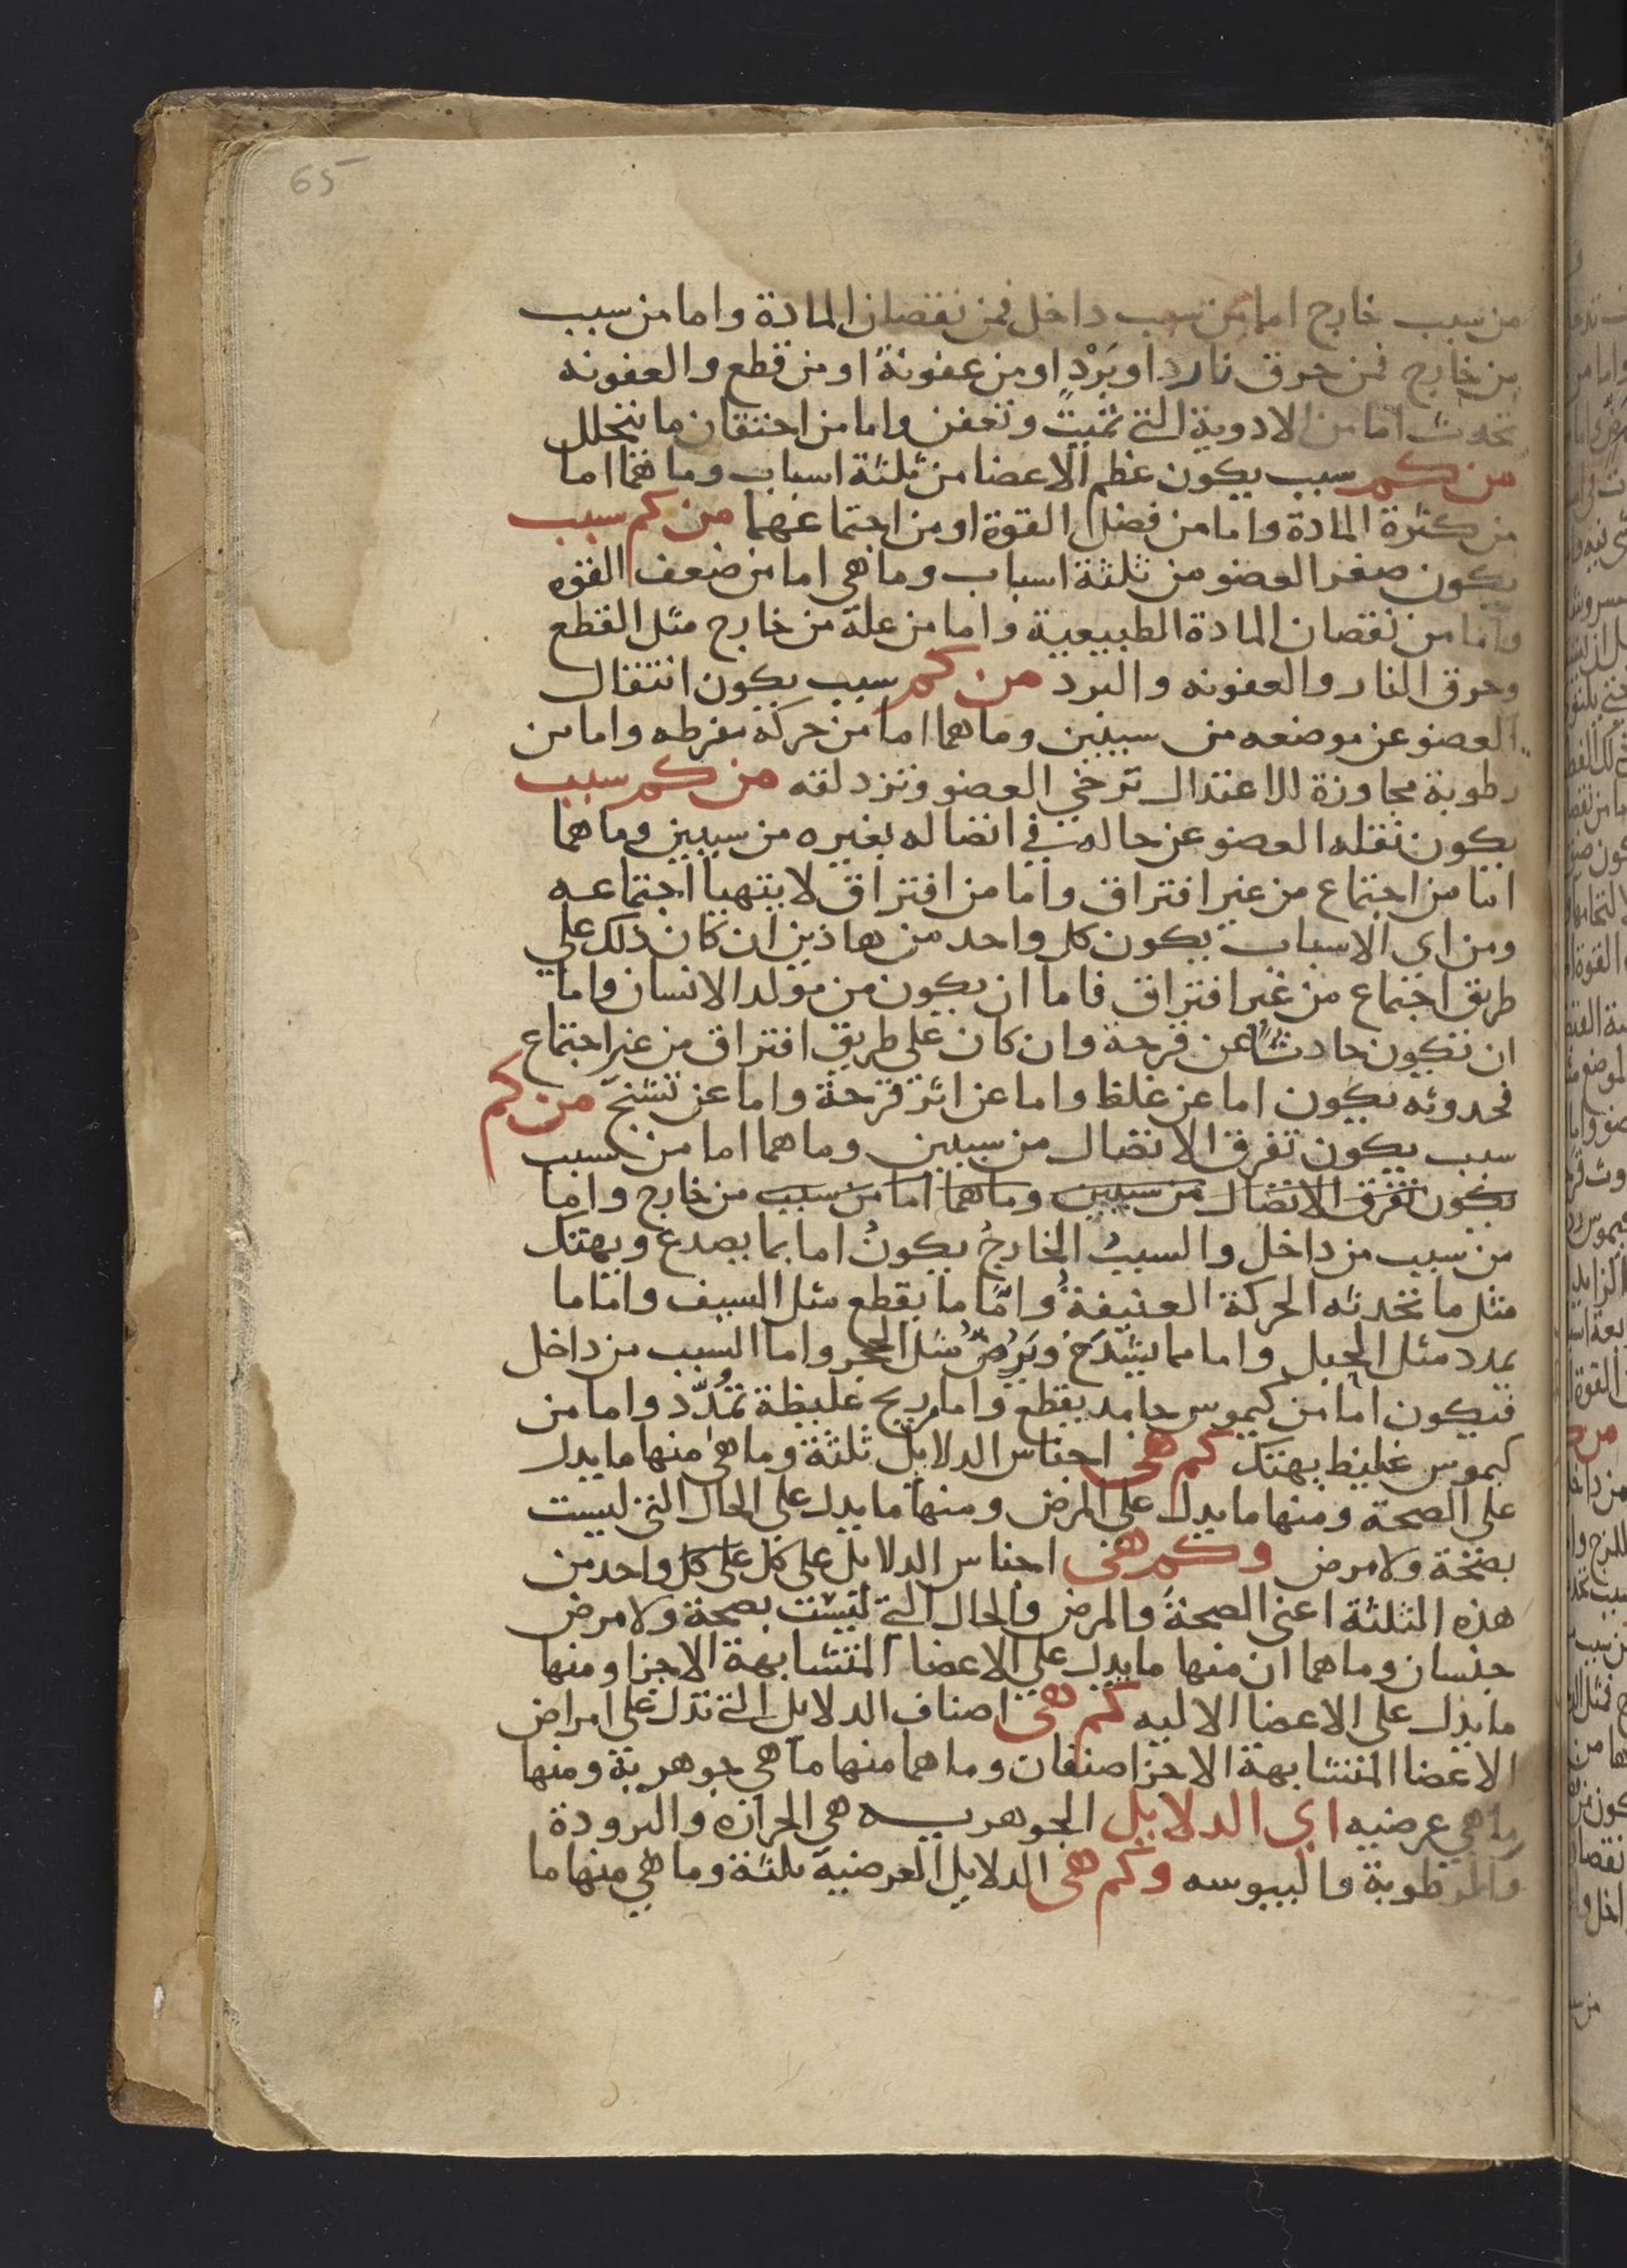 65
من سبب خارج اما من سبب داخل فمن نقصان المادة واما من سبب
من خارج فمن حرق نار او بَرْدٍ او من عفونة او من قطع والعفونه
تحدث اما من الادوية التي تميت وتعفن واما من احتقان ما يتحلل
من كم سبب يكون عظم الاعضا من ثلثة اسباب وما هما اما
من كثرة المادة واما من فضل القوة او من اجتماعهما من كم سبب
يكون صغر العضو من ثلثة اسباب وما هى اما من ضعف القوه
واما من نقصان المادة الطبيعية واما من علة من خارج مثل القطع
وحرق النار والعفونه والبرد من كم سبب يكون انتقال
العضو عن موضعه من سببين وما هما اما من حركة مفرطه واما من
رطوبة مجاوزة للاعتدال ترخي العضو وتزلقه من كم سبب
يكون نقله العضو عن حاله في اتصاله بغيره من سببين وما هما
اما من اجتماع من غير افتراق واما من افتراق لا يتهيا اجتماعه
ومن اى الاسباب يكون كل واحد من هاذين ان كان ذلك على
طريق اجتماع من غير افتراق فاما ان يكون من مولد الانسان واما
ان تكون حادثًا عن قرحة وان كان على طريق افتراق من غير اجتماع
فحدوثه يكون اما عن غلظ واما عن اثر قرحة واما عن تشنج من كم
سبب يكون تفرق الاتصال من سببين وما هما اما من سبب
يكون تفرق الاتصال من سببين وما هما اما من سبب من خارج واما
من سبب من داخل والسببُ الخارجُ يكونُ اما بما يصدع ويهتك
مثل ما تحدثه الحركة العنيفةُ وامّا ما يقطع مثل السيف واما ما
يمدد مثل الحبل واما مما يشدَخُ ويَرُضُّ مثل الحجر واما السبب من داخل
فيكون اما من كيموس حامد يقطع واما ريح غليظة تمُدّد واما من
كيموس غليظ يهتك كم هى اجناس الدلايل ثلثة وما هى منها ما يدل
على الصحة ومنها ما يدل على المرض ومنها ما يدل على الحال التي ليست
بصحة ولا مرض وكم هى اجناس الدلايل على كل على كل واحد من
هذه الثلثة اعنى الصحة والمرض والحال التي ليست بصحة ولا مرض
جنسان وما هما ان منها ما يدل على الاعضا المتشابهة الاجزا ومنها
ما يدل على الاعضا الاليه كم هى اصناف الدلايل التي تدل على امراض
الاعضا المتشابهة الاجزا صنفان وما هما منها ما هي جوهرية ومنها
ما هي عرضيه اى الدلايل الجوهريه هي الحراره والبرودة
والرطوبة واليبوسه وكم هى الدلايل العرضية ثلثة وما هي منها ما